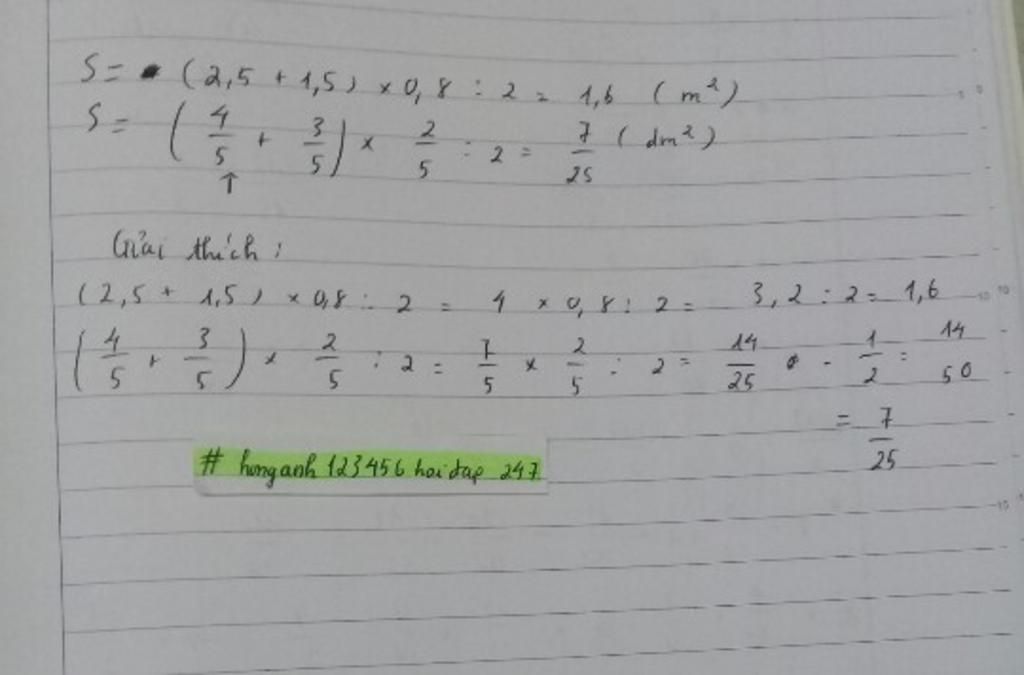 S = (2,5 + 1,5) × 0,8 : 2 = 1,6 (m²)
S = (4/5 + 3/5) × 2/5 : 2 = 7/25 (dm²)
↑
Giải thích :
(2,5 + 1,5) × 0,8 : 2 = 4 × 0,8 : 2 = 3,2 : 2 = 1,6
(4/5 + 3/5) × 2/5 : 2 = 7/5 × 2/5 : 2 = 14/25 · 1/2 = 14/50
= 7/25
# honganh 123456 hoidap 247